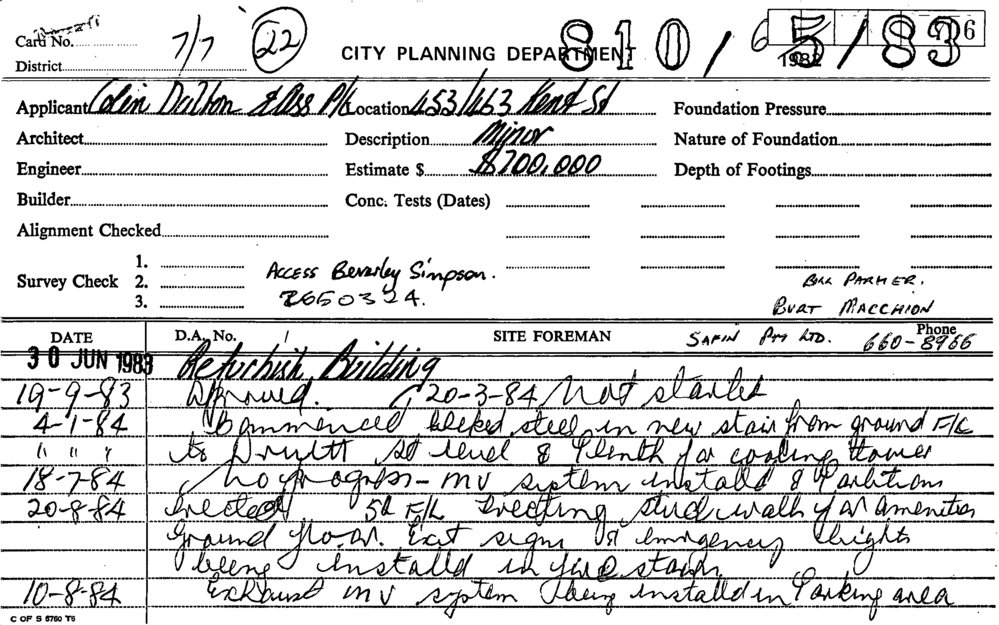 Card No.
7/7 22 CITY PLANNING DEPARTMENT 810 / 65 / 83
District
Applicant Colin Dalton & Ass P/L Location 453/463 Kent St Foundation Pressure
Architect Description Minor Nature of Foundation
Engineer Estimate $ $700,000 Depth of Footings
Builder Conc. Tests (Dates)
Alignment Checked
1.
Survey Check 2. ACCESS Beverley Simpson.
3. 2650324.
BILL PARHER.
BURT MACCHION
DATE D.A. No. / SITE FOREMAN SAPIN Pty LTD. Phone 660-8966
30 JUN 1983 Refurbish Building
19-9-83 Approved. 20-3-84 Not started
4-1-84 Commenced checked steel in new stair from ground F/L
" " " to Druitt St level & Plenth for cooling tower
18-7-84 no progress - mv system installd & Partitions
20-8-84 Erected 5th F/L Erecting stud walls for amenities
Ground floor. Exit signs & emergency lights
being installd in fire stairs
10-8-84 Exhaust mv system being installed in Parking area
C OF S 5760 T6